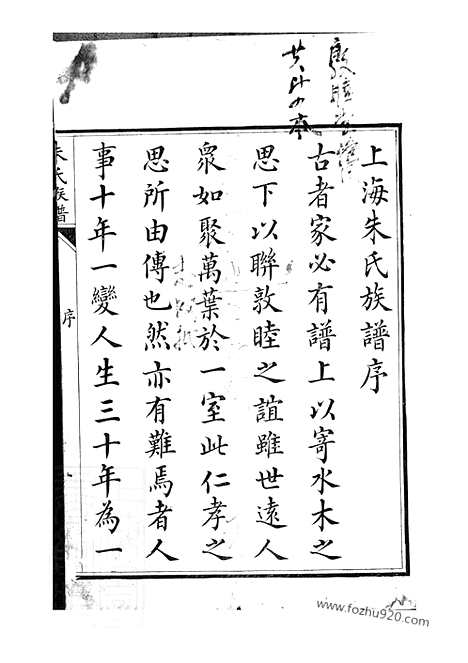 上海朱氏族譜序
古者家必有譜上以寄水木之
思下以聯敦睦之誼雖世遠人
衆如聚萬葉於一室此仁孝之
思所由傳也然亦有難焉者人
事十年一變人生三十年為一
朱氏族譜
序
www.fozhu920.com